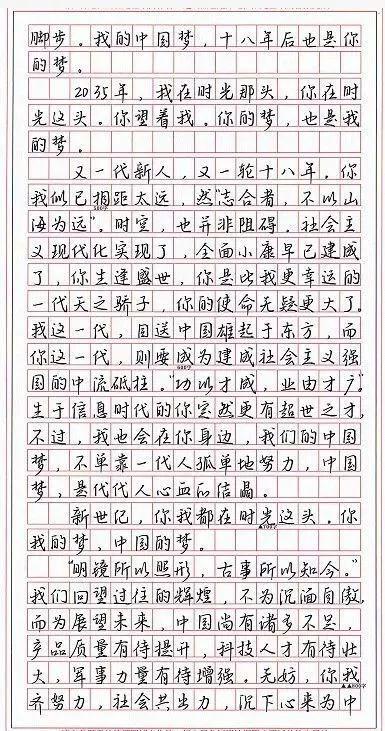 脚步。我的中国梦，十八年后也是你
的梦。
2035年，我在时光那头，你在时
光这头。你望着我。你的梦，也是我
的梦。
又一代新人，又一轮十八年。你
我似已相距太远，然“志合者，不以山
海为远”。时空，也并非阻碍。社会主
义现代化实现了，全面小康早已建成
了，你生逢盛世，你是比我更幸运的
一代天之骄子，你的使命无疑更大了。
我这一代，目送中国雄起于东方，而
你这一代，则要成为建成社会主义强
600字
国的中流砥柱。“功以才成，业由才广”。
生于信息时代的你定然更有超世之才，
不过，我也会在你身边，我们的中国
梦，不单靠一代人孤单地努力，中国
梦，是代代人心血的结晶。
新世纪，你我都在时光这头。你
我的梦，中国的梦。
“明镜所以照形，古事所以知今。”
我们回望过往的辉煌，不为沉湎自傲，
而为展望未来，中国尚有诸多不足，
产品质量有待提升，科技人才有待壮
大，军事力量有待增强。无妨，你我
▲▲800字
齐努力，社会共出力，沉下心来为中